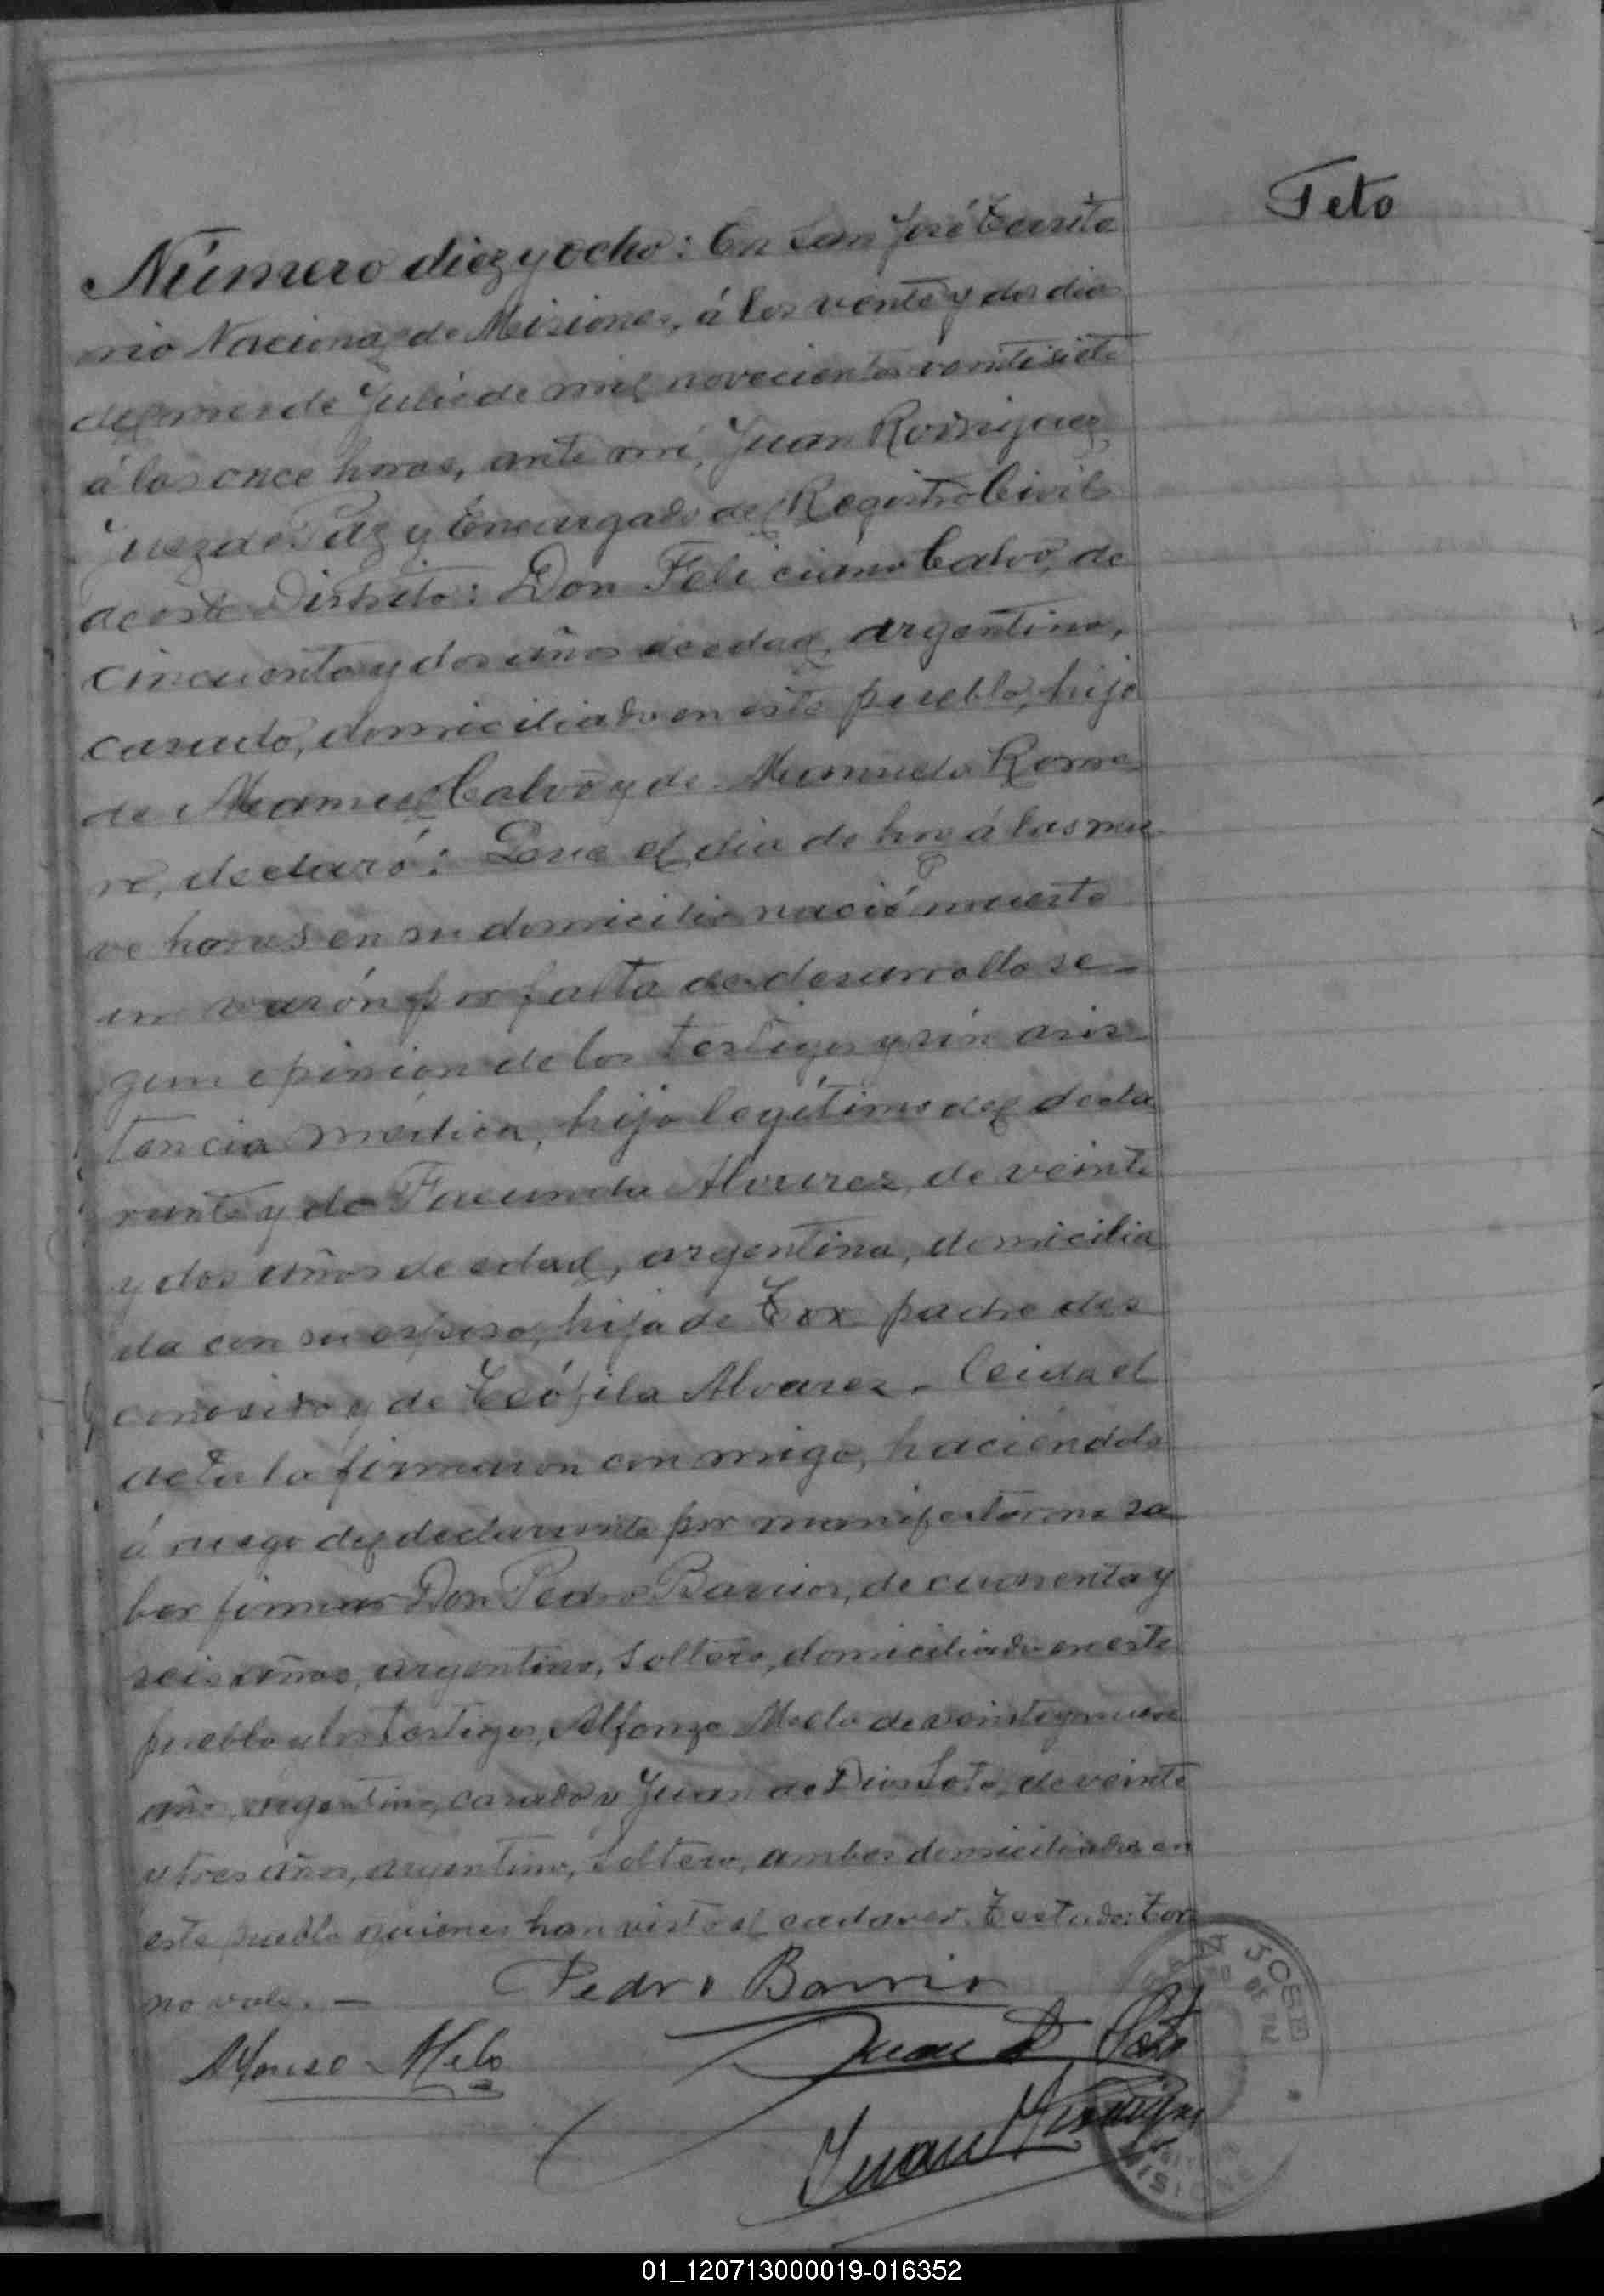 Feto
Número diez y ocho: En San José Territo
rio Nacional de Misiones, á los veinte y dos dias
del mes de Julio de mil novecientos veintisiete
á las once horas, ante mí, Juan Rodriguez,
Juez de Paz y Encargado del Registro Civil
de este Distrito: Don Feliciano Calvo, de
cincuenta y dos años de edad, argentino,
casado, domiciliado en este pueblo, hijo
de Manuel Calvo y de Manuela Rome
ro, declaró: Que el dia de hoy á las nue
ve horas en su domicilio nació muerto
un varón por falta de desarrollo se-
gun opinion de los testigos y sin asis-
tencia médica, hijo legítimo del decla
rante y de Facunda Alvarez, de veinte
y dos años de edad, argentina, domicilia
da con su esposo, hija de Tor padre des
conosido y de Teófila Alvarez. Leida el
acta la firmaron con migo, haciéndolo
á ruego del declarante por manifestar no sa
ber firmar Don Pedro Barrios, de cuarenta y
seis años, argentino, soltero, domiciliado en este
pueblo y los testigos, Alfonzo Melo de veinte y nueve
año, argentino, casado y Juan de Dios Soto, de veinte
y tres años, argentino, soltero, ambos domiciliados en
este pueblo quienes han visto el cadaver. Testado: Tor
no vale. —
Pedro Barrio
Alfonso Melo
Juan D Soto
Juan Rodriguez
01_120713000019-016352